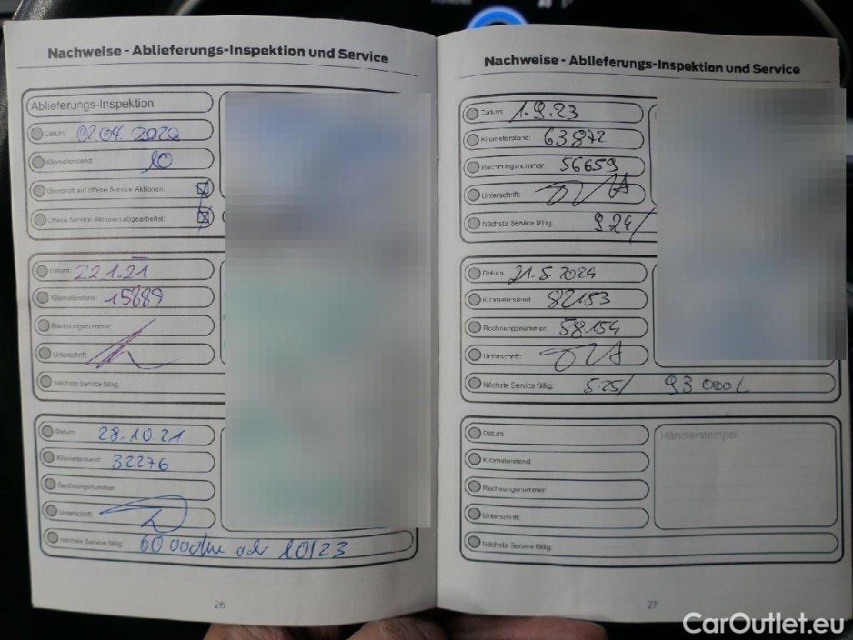 Nachweise - Ablieferungs-Inspektion und Service
Ablieferungs-Inspektion
Datum: 02.04.2020
Kilometerstand: 10
Überprüft auf offene Service Aktionen:
Offene Service Aktionen abgearbeitet:
Datum: 22.1.21
Kilometerstand: 15889
Rechnungsnummer:
Unterschrift:
Nächste Service fällig:
Datum: 28.10.21
Kilometerstand: 32276
Rechnungsnummer:
Unterschrift:
Nächste Service fällig: 60 000 km od. 10/23
26
Nachweise - Ablieferungs-Inspektion und Service
Datum: 1.9.23
Kilometerstand: 63872
Rechnungsnummer: 56659
Unterschrift:
Nächste Service fällig: 9.24/
Datum: 21.5.2024
Kilometerstand: 82153
Rechnungsnummer: 58154
Unterschrift:
Nächste Service fällig: 5.25/ 93 000
Datum:
Händlerstempel
Kilometerstand:
Rechnungsnummer:
Unterschrift:
Nächste Service fällig:
27
CarOutlet.eu